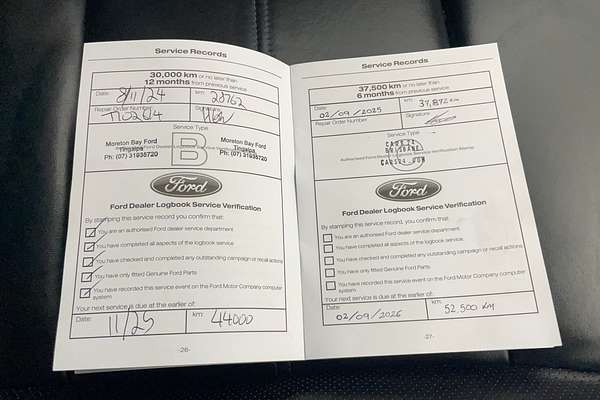 Service Records
30,000 km or no later than
12 months from previous service
Date: 8/11/24 km: 28762
Repair Order Number Signature
Service Type
Moreton Bay Ford
Tingalpa
Ph: (07) 31935720
B
Moreton Bay Ford
Tingalpa
Ph: (07) 31935720
Ford
Ford Dealer Logbook Service Verification
By stamping this service record you confirm that:
You are an authorised Ford dealer service department.
You have completed all aspects of the logbook service
You have checked and completed any outstanding campaign or recall actions
You have only fitted Genuine Ford Parts
You have recorded this service event on the Ford Motor Company computer
system
Your next service is due at the earlier of:
Date: km:
11/25 44000
-26-
Service Records
37,500 km or no later than
6 months from previous service
Date: 02/09/2025 km: 37,872 km
Repair Order Number Signature
Service Type
CARS 24
BRISBANE
Authorised Ford Dealer Service Verification Stamp
CARS24.COM
Ford
Ford Dealer Logbook Service Verification
By stamping this service record, you confirm that:
You are an authorised Ford dealer service department.
You have completed all aspects of the logbook service.
You have checked and completed any outstanding campaign or recall actions
You have only fitted Genuine Ford Parts
You have recorded this service event on the Ford Motor Company computer
system
Your next service is due at the earlier of:
Date: km:
02/09/2026 52,500 km
-27-